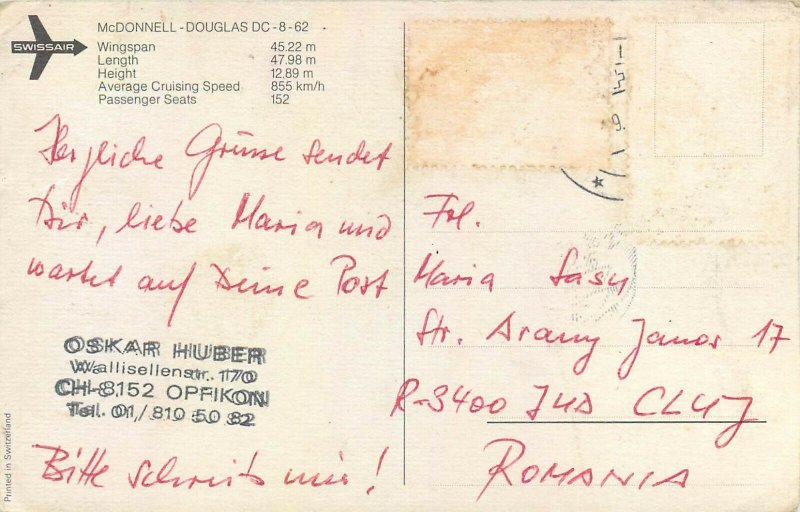 McDONNELL-DOUGLAS DC-8-62
SWISSAIR
Wingspan 45.22 m
Length 47.98 m
Height 12.89 m
Average Cruising Speed 855 km/h
Passenger Seats 152
Herzliche Grüsse sendet
Dir, liebe Maria und
wartet auf Deine Post
OSKAR HUBER
Wallisellenstr. 170
CH-8152 OPFIKON
Tel. 01/810 50 82
Bitte schreib mir!
Printed in Switzerland
Frl.
Maria Sasu
Str. Arany Janos 17
R-3400 JUD CLUJ
ROMANIA